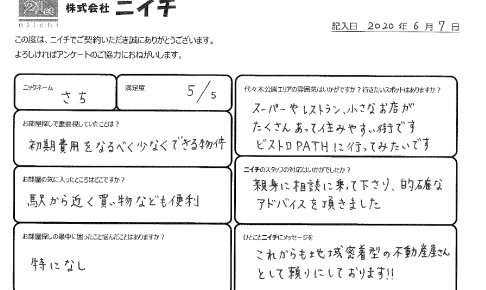 21st
niichi
株式会社 ニイチ
記入日 2020年 6月 7日
この度は、ニイチでご契約いただき誠にありがとうございます。
よろしければアンケートのご協力におねがいします。
ニックネーム
さち
満足度
5/5
お部屋探しで重要視していたことは?
初期費用をなるべく少なくできる物件
お部屋の気に入ったところはどこですか?
駅から近く買い物なども便利
お部屋探しの最中に困ったこと悩んだことはありますか?
特になし
代々木公園エリアの雰囲気はいかがですか?行きたいスポットはありますか?
スーパーやレストラン、小さなお店が
たくさんあって住みやすい街です
ビストロPATHに行ってみたいです
ニイチのスタッフの対応はいかがでしたか?
親身に相談に乗って下さり、的確な
アドバイスを頂きました
ひとことニイチにメッセージを
これからも地域密着型の不動産屋さん
として頼りにしております!!